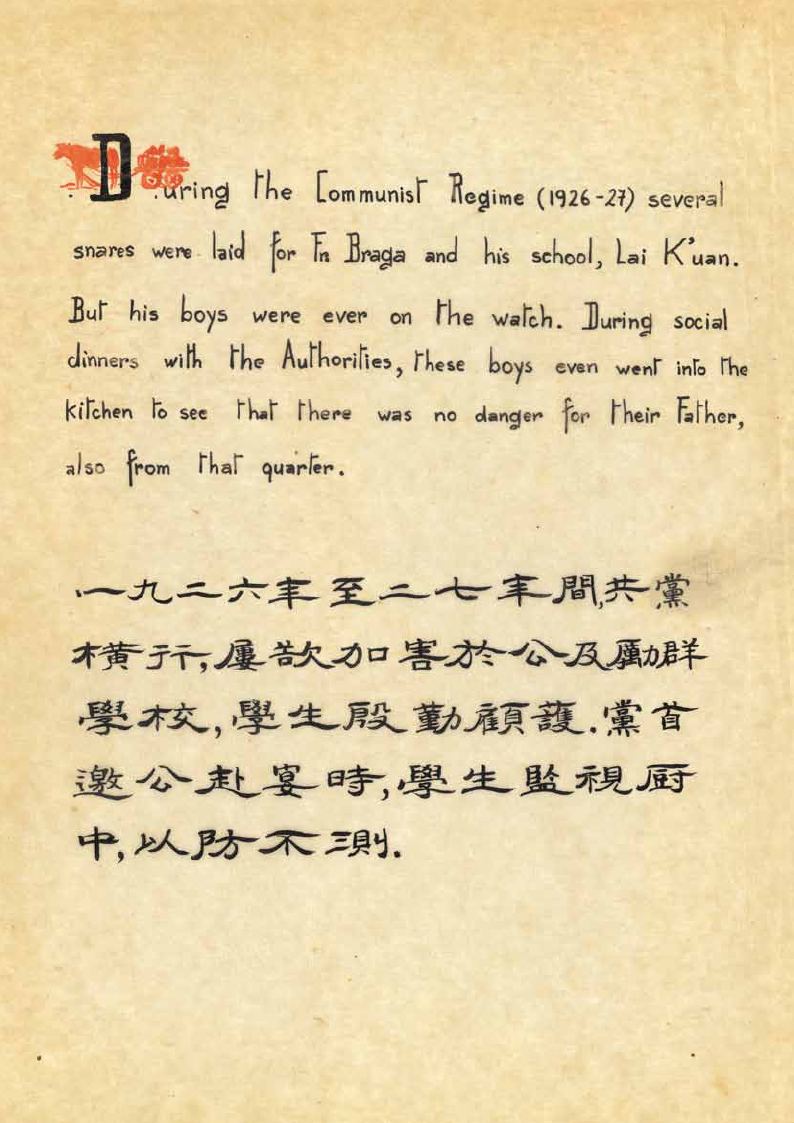 During the Communist Regime (1926-27) several
snares were laid for Fr. Braga and his school, Lai K'uan.
But his boys were ever on the watch. During social
dinners with the Authorities, these boys even went into the
kitchen to see that there was no danger for their Father,
also from that quarter.
一九二六年至二七年間,共黨
橫行,屢欲加害於公及勵群
學校,學生殷勤顧護.黨首
邀公赴宴時,學生監視厨
中,以防不測.